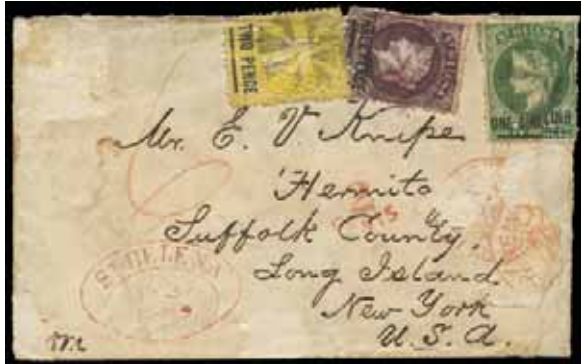 TWO PENCE
ST HELENA
ONE SHILLING
Mr. E. V. Knipe
Hermito
Suffolk County,
Long Island
New York
U. S. A.
ST HELENA